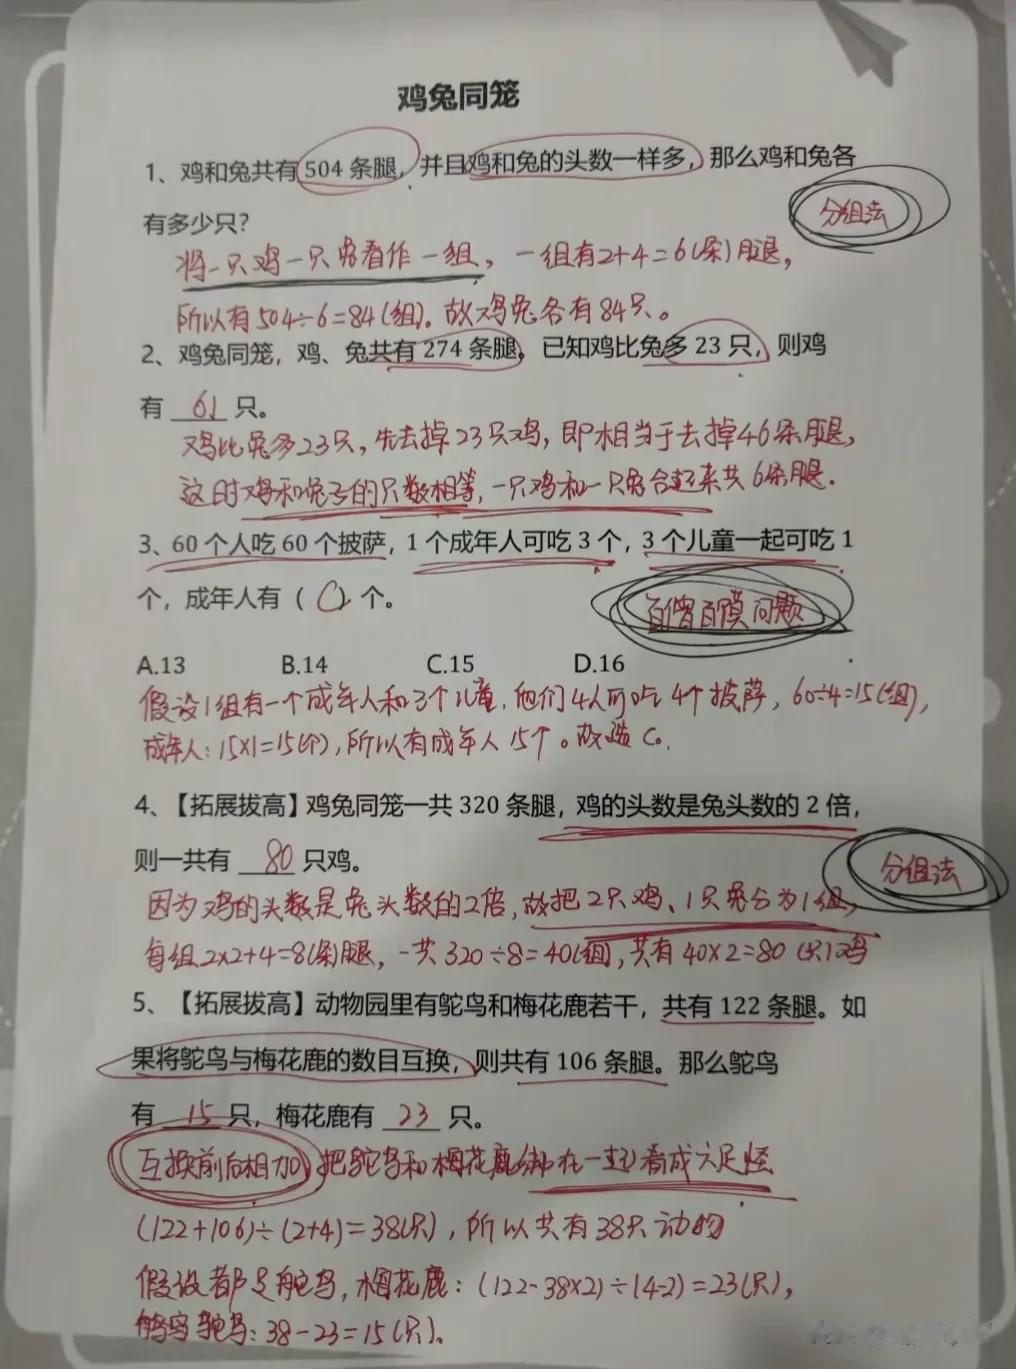 鸡兔同笼
1、鸡和兔共有504条腿，并且鸡和兔的头数一样多，那么鸡和兔各
有多少只？
分组法
将一只鸡一只兔看作一组，一组有2+4=6(条)腿，
所以有504÷6=84(组)。故鸡兔各有84只。
2、鸡兔同笼，鸡、兔共有274条腿。已知鸡比兔多23只，则鸡
有 61 只。
鸡比兔多23只，先去掉23只鸡，即相当于去掉46条腿，
这时鸡和兔子的只数相等，一只鸡和一只兔合起来共6条腿.
3、60个人吃60个披萨，1个成年人可吃3个，3个儿童一起可吃1
个，成年人有（ C ）个。
百僧百馍问题
A.13 B.14 C.15 D.16
假设1组有一个成年人和3个儿童，他们4人可吃4个披萨，60÷4=15(组)，
成年人：15×1=15(个)，所以有成年人15个。故选C。
4、【拓展拔高】鸡兔同笼一共320条腿，鸡的头数是兔头数的2倍，
则一共有 80 只鸡。
分组法
因为鸡的头数是兔头数的2倍，故把2只鸡、1只兔分为1组，
每组2×2+4=8(条)腿，一共320÷8=40(组)，共有40×2=80(只)鸡
5、【拓展拔高】动物园里有鸵鸟和梅花鹿若干，共有122条腿。如
果将鸵鸟与梅花鹿的数目互换，则共有106条腿。那么鸵鸟
有 15 只，梅花鹿有 23 只。
互换前后相加 把鸵鸟和梅花鹿绑在一起看成六足怪
(122+106)÷(2+4)=38(只)，所以共有38只动物
假设都是鸵鸟，梅花鹿：(122-38×2)÷(4-2)=23(只)，
鸵鸟：38-23=15(只)。